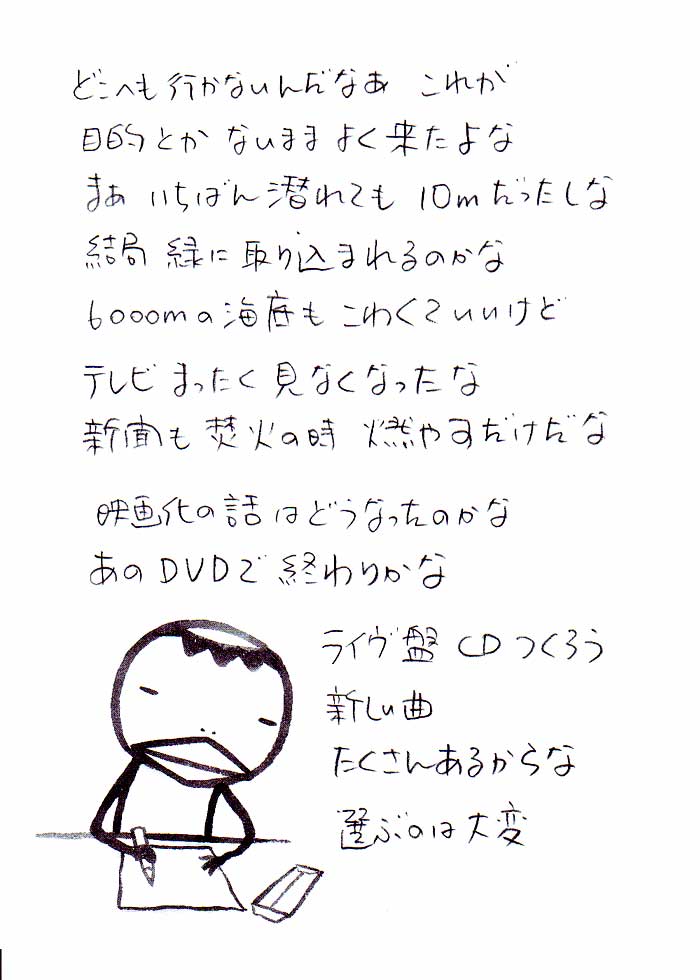 どこへも行かないんだなあ これが
目的とか ないまま よく来たよな
まあ いちばん潜れても 10mだったしな
結局 緑に取り込まれるのかな
6000mの海底も こわくていいけど
テレビ まったく見なくなったな
新聞も 焚火の時 燃やすだけだな
映画化の話はどうなったのかな
あのDVDで 終わりかな
ライヴ盤 CDつくろう
新しい曲
たくさんあるからな
選ぶのは大変